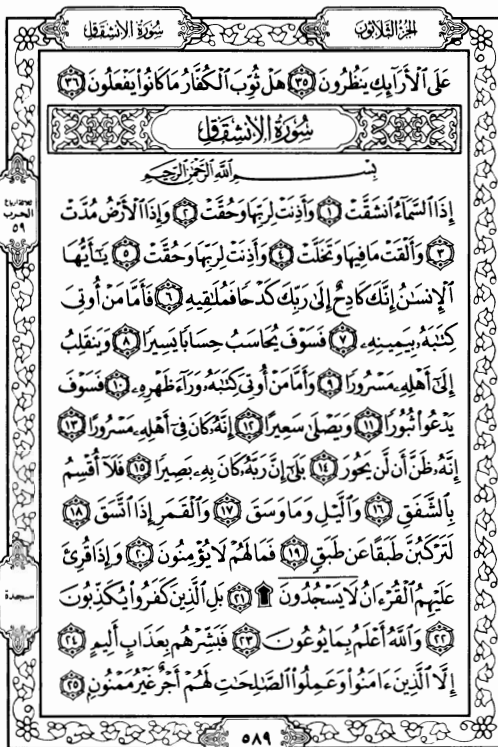 الجزء الثلاثون
سورة الانشقاق
عَلَى ٱلْأَرَآئِكِ يَنظُرُونَ ٣٥ هَلْ ثُوِّبَ ٱلْكُفَّارُ مَا كَانُوا۟ يَفْعَلُونَ ٣٦
سُورَةُ الانشِقَاقِ
بِسْمِ ٱللَّهِ ٱلرَّحْمَٰنِ ٱلرَّحِيمِ
إِذَا ٱلسَّمَآءُ ٱنشَقَّتْ ١ وَأَذِنَتْ لِرَبِّهَا وَحُقَّتْ ٢ وَإِذَا ٱلْأَرْضُ مُدَّتْ
٣ وَأَلْقَتْ مَا فِيهَا وَتَخَلَّتْ ٤ وَأَذِنَتْ لِرَبِّهَا وَحُقَّتْ ٥ يَٰٓأَيُّهَا
ٱلْإِنسَٰنُ إِنَّكَ كَادِحٌ إِلَىٰ رَبِّكَ كَدْحًا فَمُلَٰقِيهِ ٦ فَأَمَّا مَنْ أُوتِىَ
كِتَٰبَهُۥ بِيَمِينِهِۦ ٧ فَسَوْفَ يُحَاسَبُ حِسَابًا يَسِيرًا ٨ وَيَنقَلِبُ
إِلَىٰٓ أَهْلِهِۦ مَسْرُورًا ٩ وَأَمَّا مَنْ أُوتِىَ كِتَٰبَهُۥ وَرَآءَ ظَهْرِهِۦ ١٠ فَسَوْفَ
يَدْعُوا۟ ثُبُورًا ١١ وَيَصْلَىٰ سَعِيرًا ١٢ إِنَّهُۥ كَانَ فِىٓ أَهْلِهِۦ مَسْرُورًا ١٣
إِنَّهُۥ ظَنَّ أَن لَّن يَحُورَ ١٤ بَلَىٰٓ إِنَّ رَبَّهُۥ كَانَ بِهِۦ بَصِيرًا ١٥ فَلَآ أُقْسِمُ
بِٱلشَّفَقِ ١٦ وَٱلَّيْلِ وَمَا وَسَقَ ١٧ وَٱلْقَمَرِ إِذَا ٱتَّسَقَ ١٨
لَتَرْكَبُنَّ طَبَقًا عَن طَبَقٍ ١٩ فَمَا لَهُمْ لَا يُؤْمِنُونَ ٢٠ وَإِذَا قُرِئَ
عَلَيْهِمُ ٱلْقُرْءَانُ لَا يَسْجُدُونَ ۩ ٢١ بَلِ ٱلَّذِينَ كَفَرُوا۟ يُكَذِّبُونَ
٢٢ وَٱللَّهُ أَعْلَمُ بِمَا يُوعُونَ ٢٣ فَبَشِّرْهُم بِعَذَابٍ أَلِيمٍ ٢٤
إِلَّا ٱلَّذِينَ ءَامَنُوا۟ وَعَمِلُوا۟ ٱلصَّٰلِحَٰتِ لَهُمْ أَجْرٌ غَيْرُ مَمْنُونٍۭ ٢٥
الحزب
٥٩
سجدة
٥٨٩